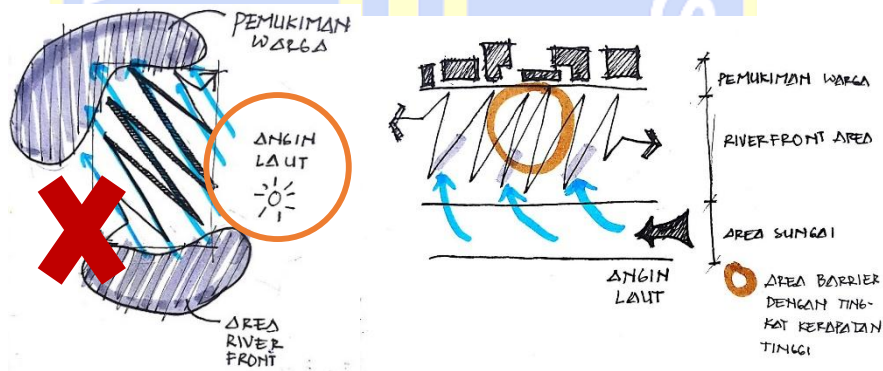 PEMUKIMAN
WARGA
ANGIN
LAUT
AREA
RIVER
FRONT
PEMUKIMAN WARGA
RIVERFRONT AREA
AREA SUNGAI
ANGIN
LAUT
AREA BARRIER
DENGAN TING-
KAT KERAPATAN
TINGGI